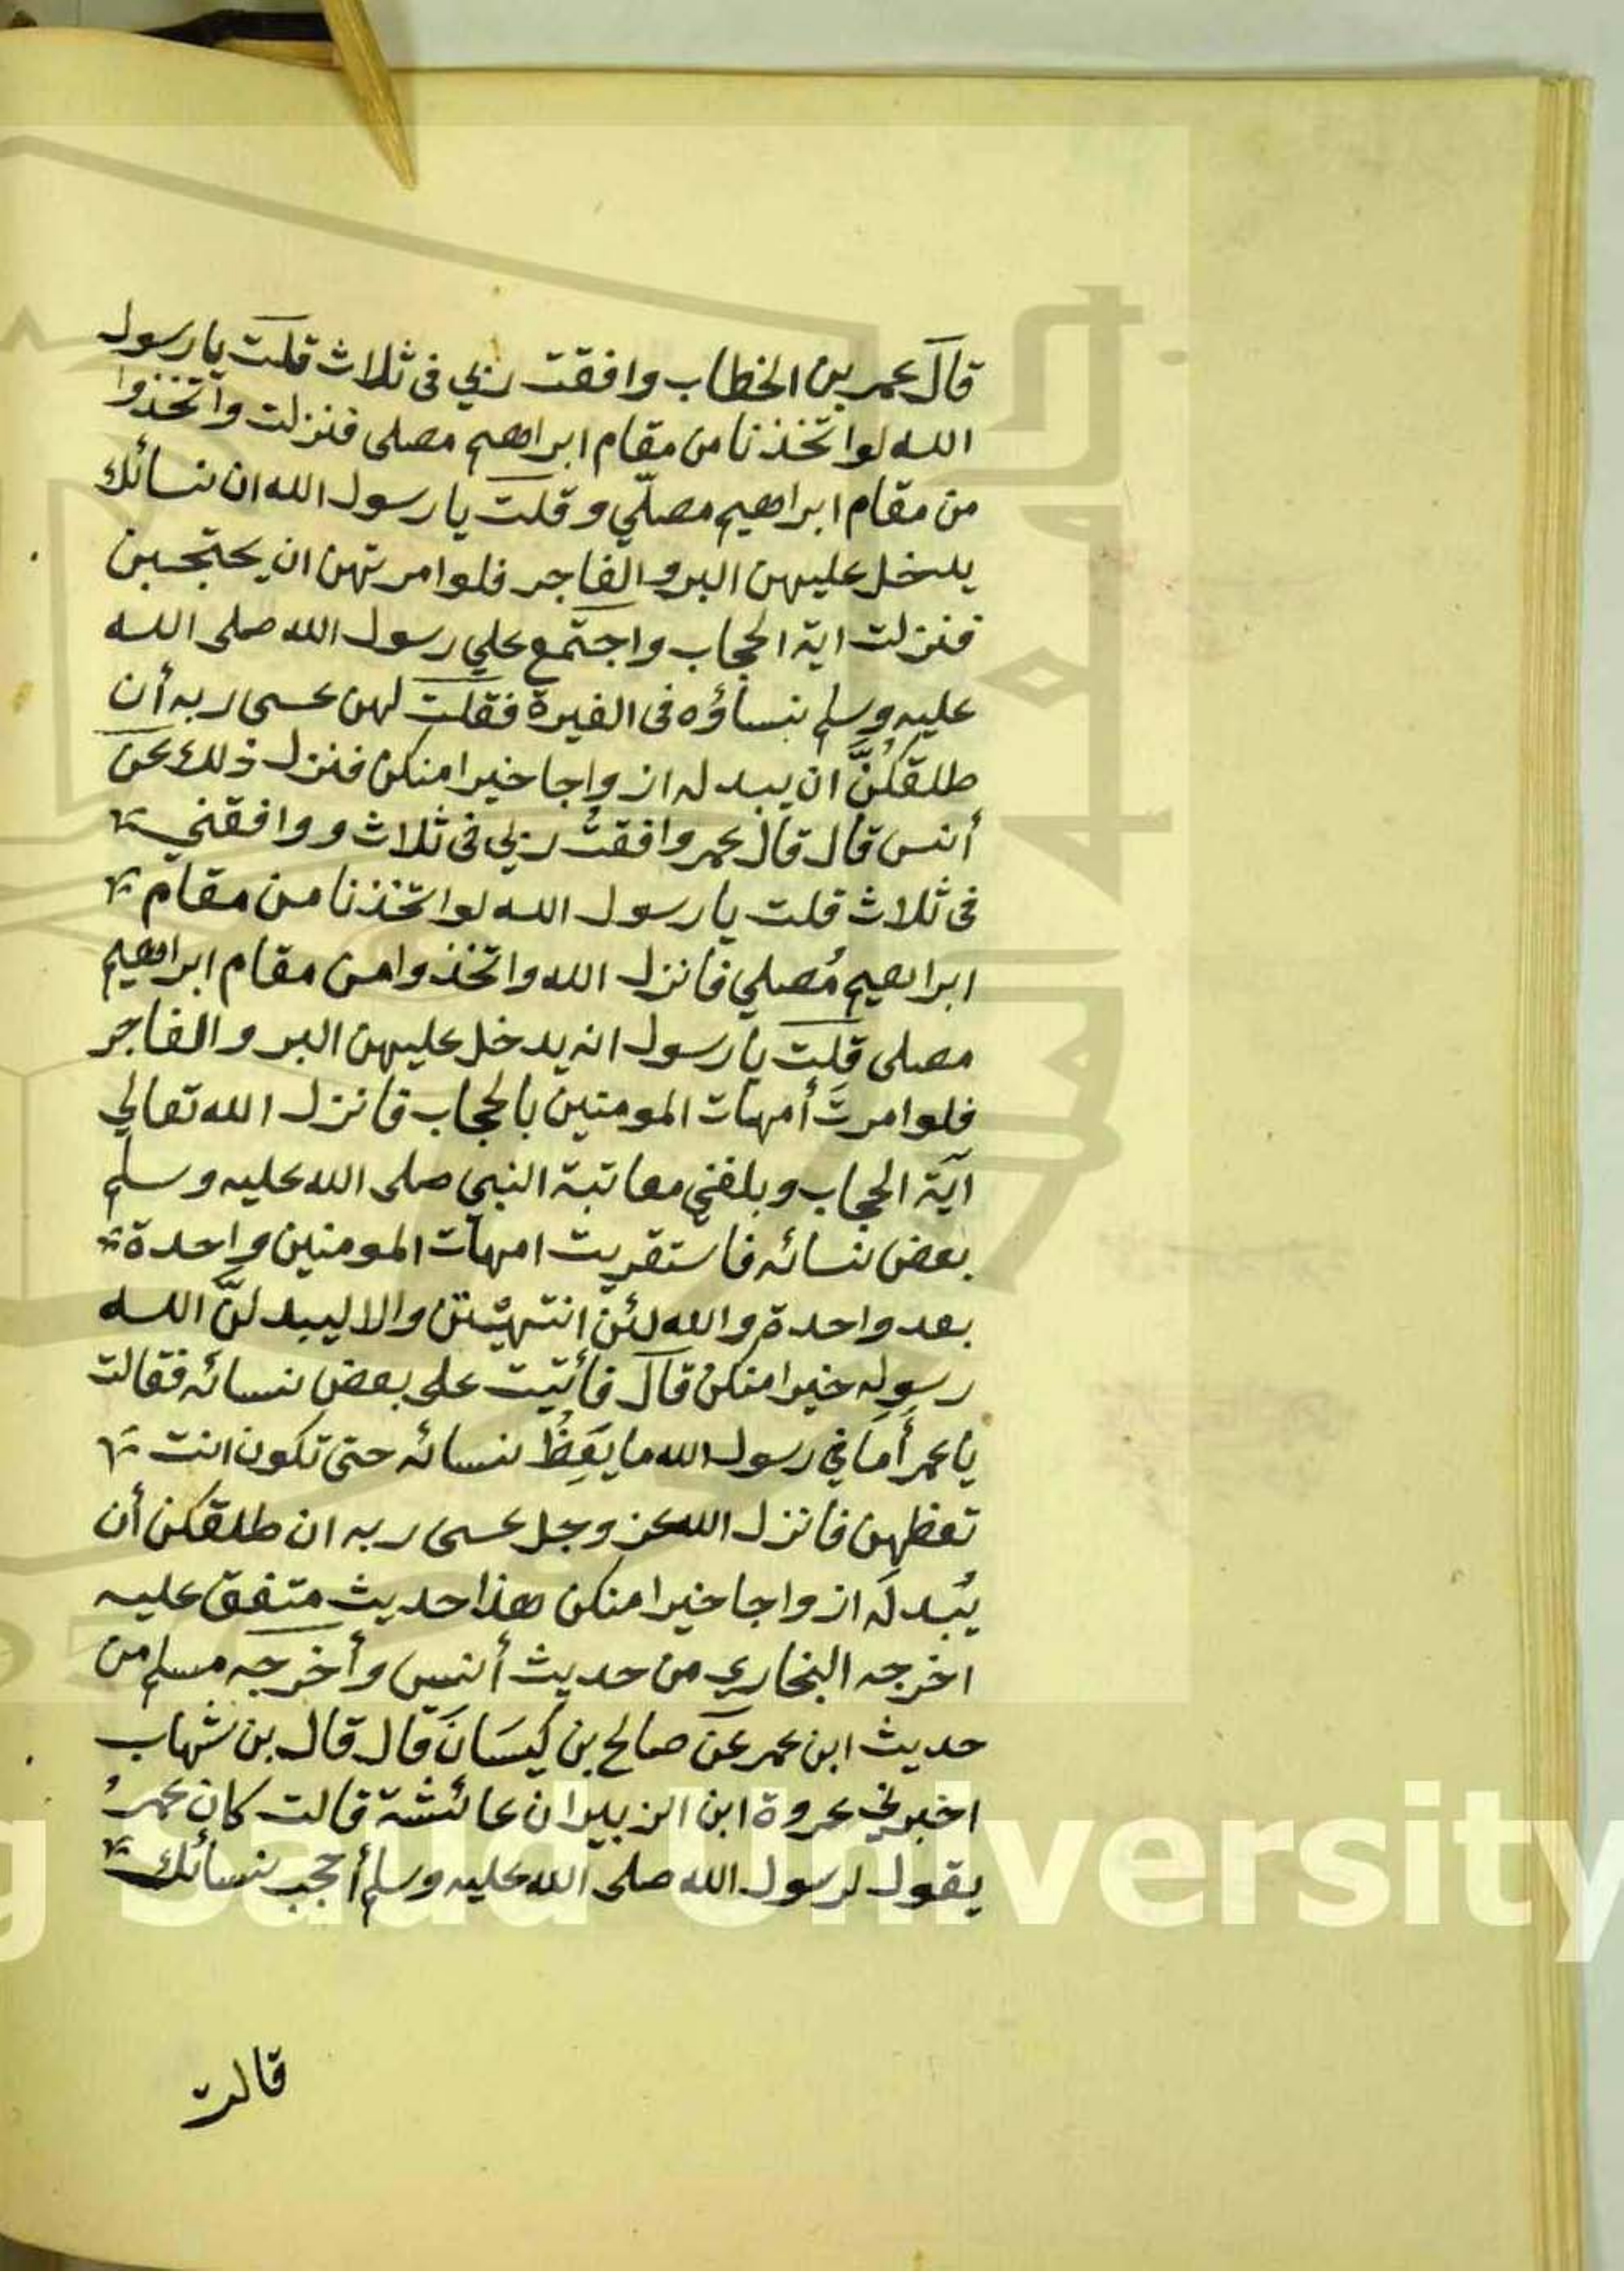 قال عمر بن الخطاب وافقت ربي فى ثلاث قلت يا رسول
الله لو اتخذنا من مقام ابراهيم مصلى فنزلت واتخذوا
من مقام ابراهيم مصلّي وقلت يا رسول الله ان نسائك
يدخل عليهن البر والفاجر فلو امرتهن ان يحتجبن
فنزلت اية الحجاب واجتمع علي رسول الله صلى الله
عليه وسلم نساؤه فى الغيرة فقلت لهن عسى ربه أن
طلقكنَّ ان يبدله ازواجا خيرا منكن فنزل ذلك عن
أنس قال قال عمر وافقتُ ربي فى ثلاث ووافقني
فى ثلاث قلت يا رسول الله لو اتخذنا من مقام
ابراهيم مُصلي فانزل الله واتخذوا من مقام ابراهيم
مصلى قلت يا رسول انه يدخل عليهن البر والفاجر
فلو امرتَ أمهات المومنين بالحجاب فانزل الله تعالي
آية الحجاب وبلغني معاتبة النبي صلى الله عليه وسلم
بعض نسائه فاستقريت امهات المومنين واحدة
بعد واحدة والله لئن انتهيْتن والا ليبدلنَّ الله
رسوله خيرا منكن قال فأتيت على بعض نسائه فقالت
يا عمر أَمَا في رسول الله ما يَعِظُ نسائه حتى تكون انت
تعظهن فانزل الله عز وجل عسى ربه ان طلقكن أن
يُبدلَه ازواجا خيرا منكن هذا حديث متفق عليه
اخرجه البخاري من حديث أنس وأخرجه مسلم من
حديث ابن عمر عن صالح بن كَيسَانَ قال قال بن شهاب
اخبرني عروة ابن الزبير ان عائشة قالت كان عمرُ
يقول لرسول الله صلى الله عليه وسلم أحجب نسائك
قالت
g Saud University